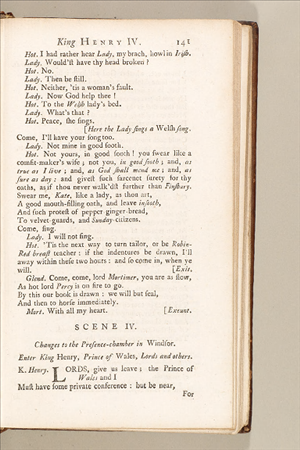 King HENRY IV. 141
Hot. I had rather hear Lady, my brach, howl in Irish.
Lady. Would'st have thy head broken?
Hot. No.
Lady. Then be still.
Hot. Neither, 'tis a woman's fault.
Lady. Now God help thee!
Hot. To the Welsh lady's bed.
Lady. What's that?
Hot. Peace, she sings.
[Here the Lady sings a Welsh song.
Come, I'll have your song too.
Lady. Not mine in good sooth.
Hot. Not yours, in good sooth! you swear like a
comfit-maker's wife; not you, in good sooth; and, as
true as I live; and, as God shall mend me; and, as
sure as day: and givest such sarcenet surety for thy
oaths, as if thou never walk'dst further than Finsbury.
Swear me, Kate, like a lady, as thou art,
A good mouth-filling oath, and leave insooth,
And such protest of pepper ginger-bread,
To velvet guards, and Sunday-citizens.
Come, sing.
Lady. I will not sing.
Hot. 'Tis the next way to turn tailor, or be Robin-
Red breast teacher: if the indentures be drawn, I'll
away within these two hours: and so come in, when ye
will. [Exit.
Glend. Come, come, lord Mortimer, you are as slow,
As hot lord Percy is on fire to go.
By this our book is drawn: we will but seal,
And then to horse immediately.
Mort. With all my heart. [Exeunt.
SCENE IV.
Changes to the Presence-chamber in Windsor.
Enter King Henry, Prince of Wales, Lords and others.
K. Henry. LORDS, give us leave; the Prince of
Wales and I
Must have some private conference: but be near,
For